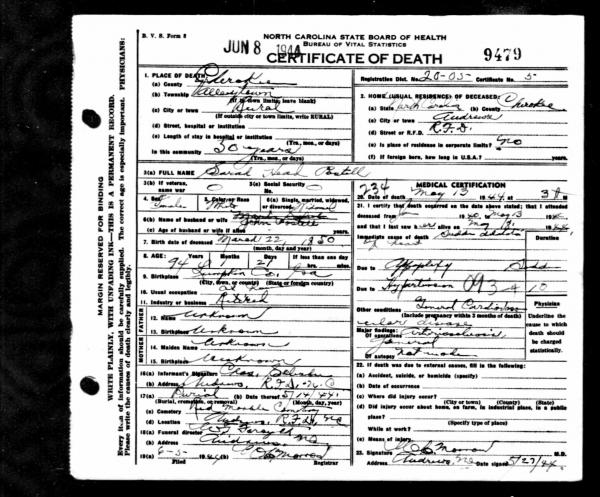 B. V. S. Form 8
NORTH CAROLINA STATE BOARD OF HEALTH
BUREAU OF VITAL STATISTICS
JUN 8 1944
CERTIFICATE OF DEATH
9479
MARGIN RESERVED FOR BINDING
WRITE PLAINLY, WITH UNFADING INK—THIS IS A PERMANENT RECORD.
Registration Dist. No. 20-05 Certificate No. 5
1. PLACE OF DEATH
(a) County Cherokee
(b) Township Valleytown
(If in town limits, leave blank)
(c) City or town Rural
(If outside city or town limits, write RURAL)
(d) Street, hospital or institution
(e) Length of stay in hospital or institution
(Yrs., mos., or days)
In this community 50 years
(Yrs., mos., or days)
2. HOME (USUAL RESIDENCE) OF DECEASED:
(a) State North Carolina (b) County Cherokee
(c) City or town Andrews
(d) Street or R.F.D. R.F.D.
(e) Is place of residence in corporate limits? No
(f) If foreign born, how long in U.S.A.? years
3(a) FULL NAME Sarah Postell
3(b) If veteran, war 0
3(c) Social Security No. 0
4. Sex Female
5. Color or Race White
6(a) Single, married, widowed, or divorced Widowed
6(b) Name of husband or wife John Postell
6(c) Age of husband or wife if alive
7. Birth date of deceased March 22 1850
(month, day and year)
8. AGE: 94 1 21 If less than one day
hrs. min.
9. Birthplace Lumpkin Co., Ga
(City, town, or county) (State or foreign country)
10. Usual occupation
11. Industry or business Retired
FATHER
12. Name Unknown
13. Birthplace Unknown
MOTHER
14. Maiden Name Unknown
15. Birthplace Unknown
16(a) Informant's Signature
(b) Address Andrews, R.F.D. N.C
17(a) Burial (b) Date thereof 5/14/44
(Burial, cremation, or removal) (Month, day, year)
(c) Cemetery Red Marble Cemetery
(d) Location Andrews, R.F.D. NC
18(a) Funeral director
(b) Address Andrews, NC
19(a) 6-5- 1944 (b)
Filed Registrar
234 MEDICAL CERTIFICATION
20. Date of death May 13 1944
21. I certify that death occurred on the date above stated; that I attended
deceased from
and that I last saw her alive on
Immediate cause of death
Duration
Due to Apoplexy
Due to Hypertension 093 10
Other conditions General
(Include pregnancy within 3 months of death)
Major findings: Arteriosclerosis
general
Of autopsy not made
Physician
Underline the cause to which death should be charged
22. If death was due to external causes, fill in the following:
(a) Accident, suicide, or homicide (specify)
(b) Date of occurrence
(c) Where did injury occur?
(City or town) (County) (State)
(d) Did injury occur about home, on farm, in industrial place, in a public place?
(Specify type of place)
While at work?
(e) Means of injury
23. Signature Morrow M.D.
Address Andrews, NC Date signed 5/27/44